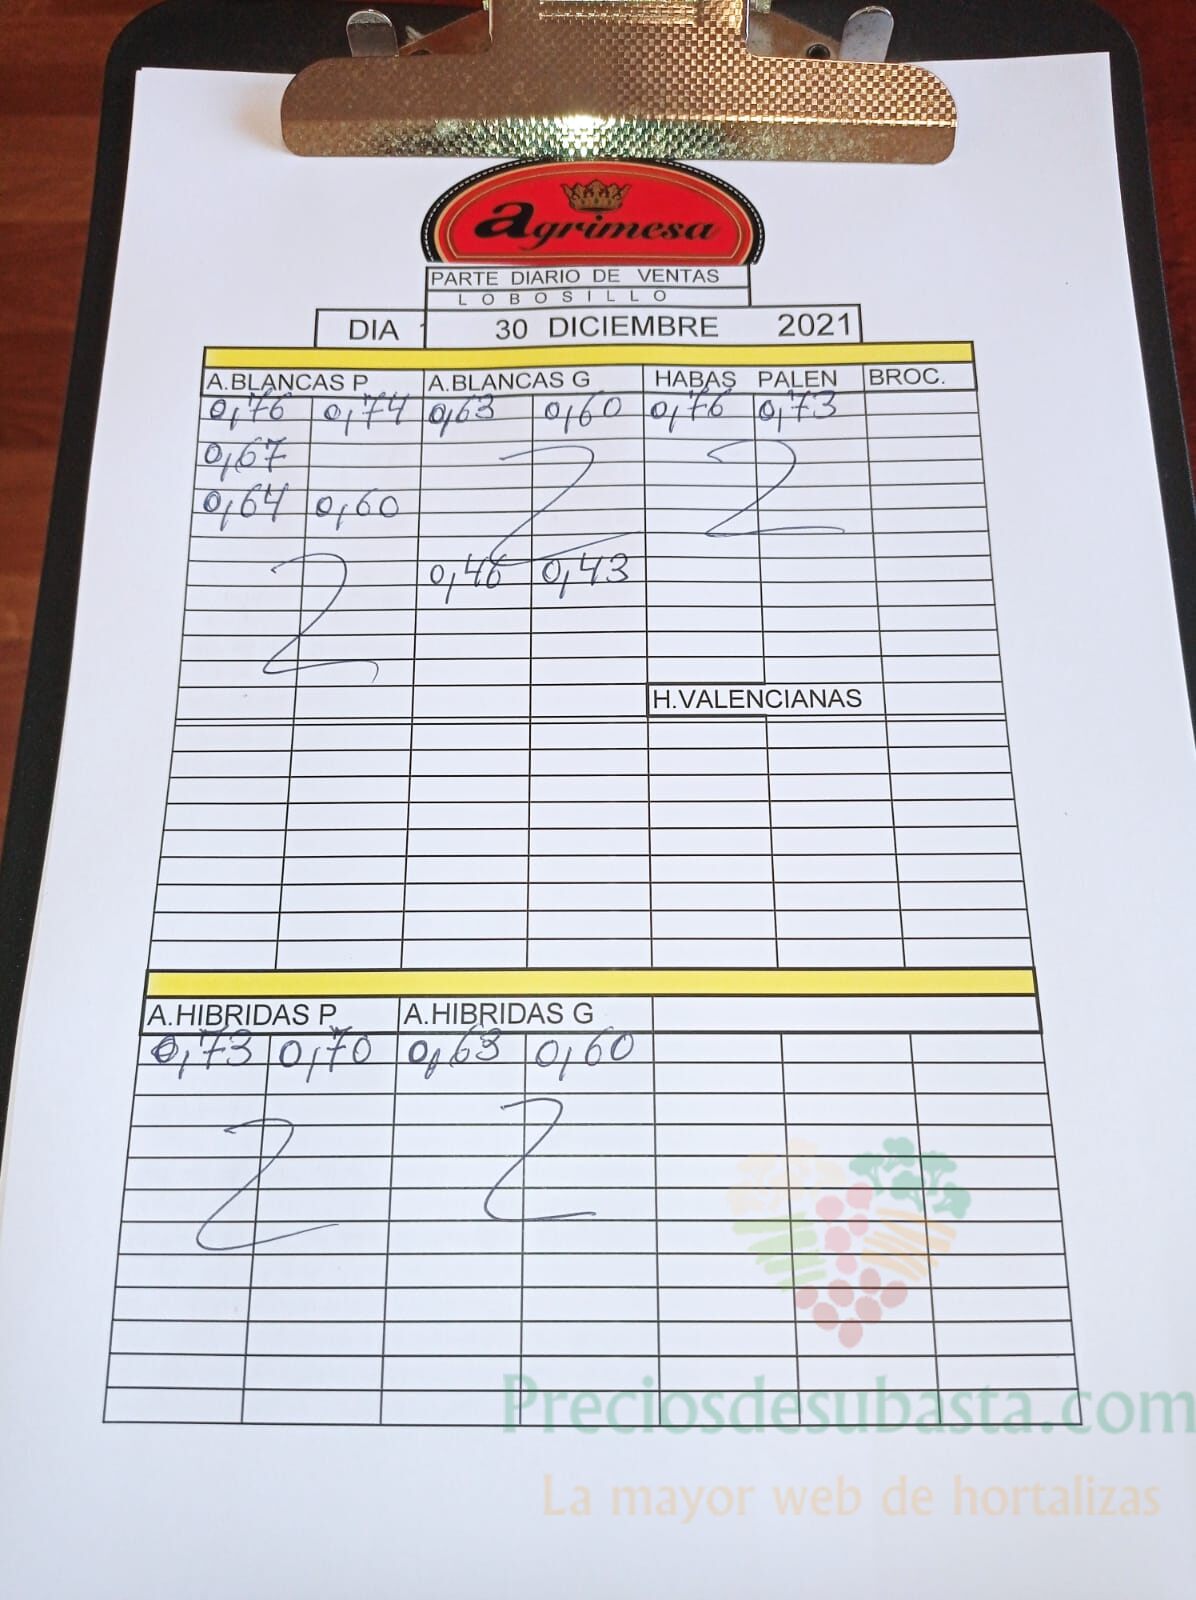 agrimesa
PARTE DIARIO DE VENTAS
LOBOSILLO
DIA 30 DICIEMBRE 2021
A.BLANCAS P A.BLANCAS G HABAS PALEN BROC.
0,76 0,74 0,63 0,60 0,76 0,73
0,67
0,64 0,60
0,46 0,43
H.VALENCIANAS
A.HIBRIDAS P A.HIBRIDAS G
0,73 0,70 0,63 0,60
Preciosdesubasta.com
La mayor web de hortalizas